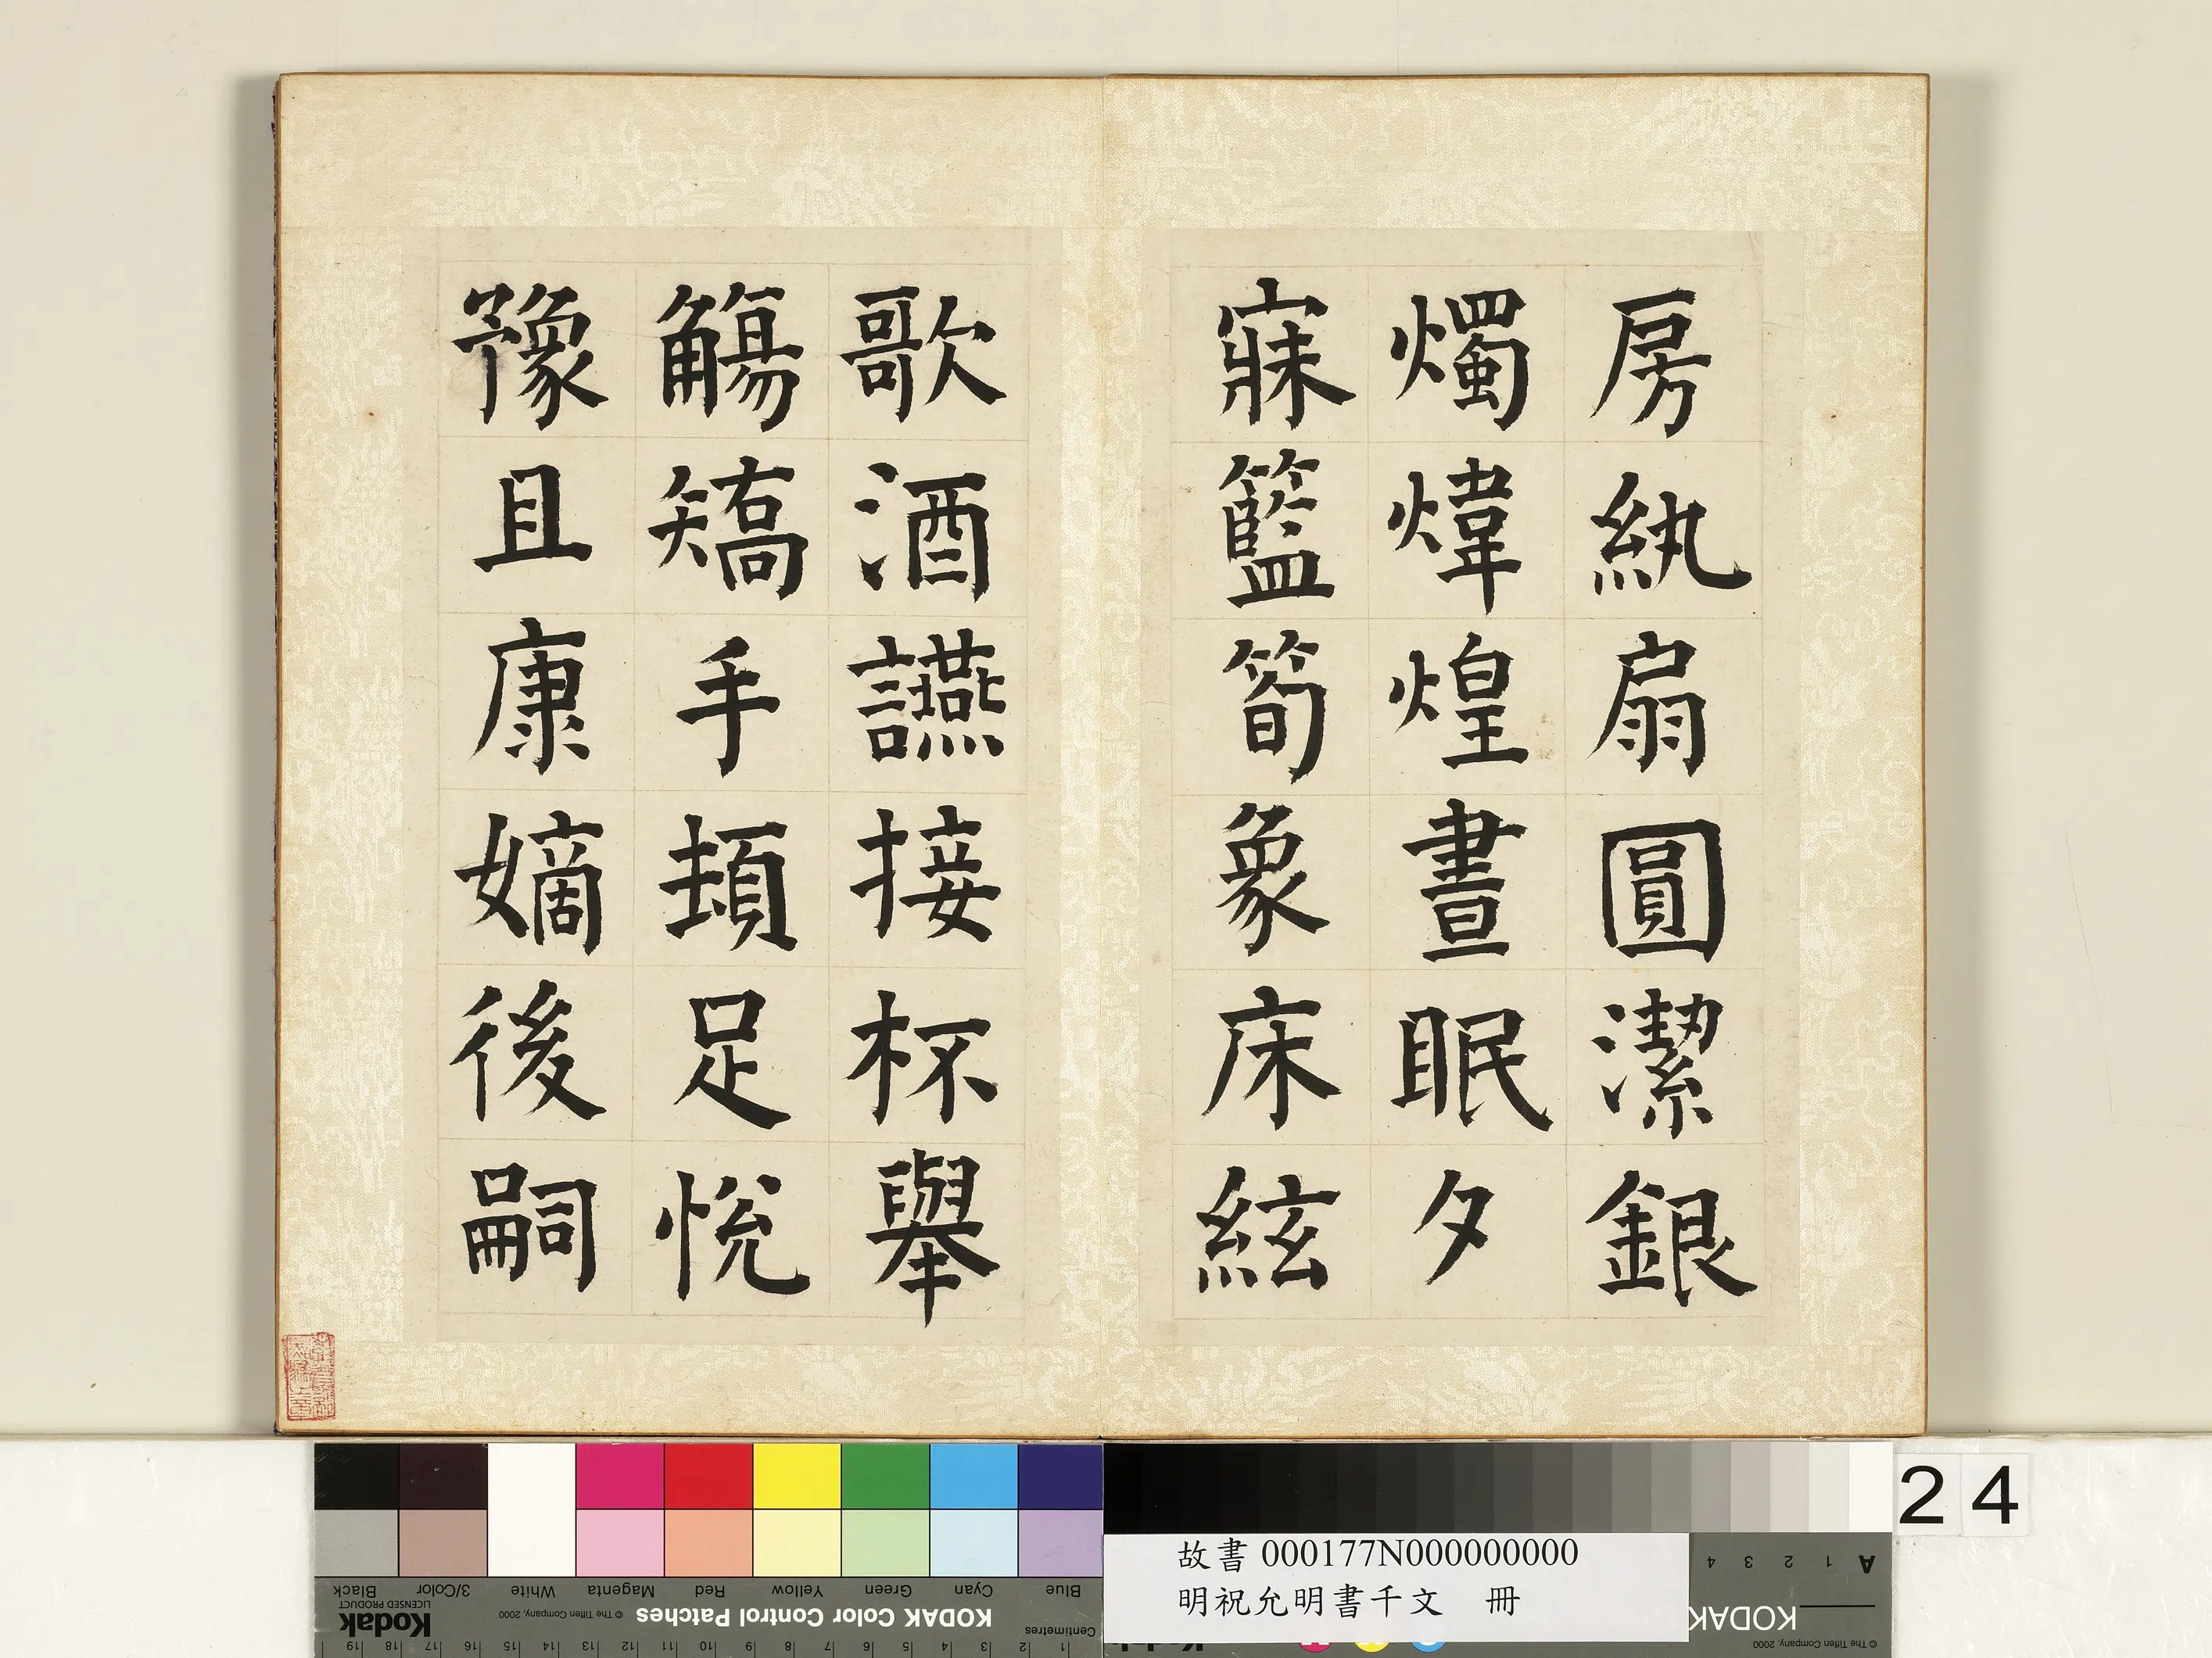 房紈扇圓潔銀
燭煒煌晝眠夕
寐籃筍象床絃
歌酒讌接杯舉
觴矯手頓足悅
豫且康嫡後嗣
24
故書 000177N000000000
明祝允明書千文 冊
Black
3/Color
White
Magenta
Red
Yellow
Green
Cyan
Blue
Kodak
LICENSED PRODUCT
© The Tiffen Company, 2000
KODAK Color Control Patches
Centimetres
19 18 17 16 15 14 13 12 11 10 9 8 7 6 5 4 3 2 1
A 1 2 3 4
KODAK
© The Tiffen Company, 2000